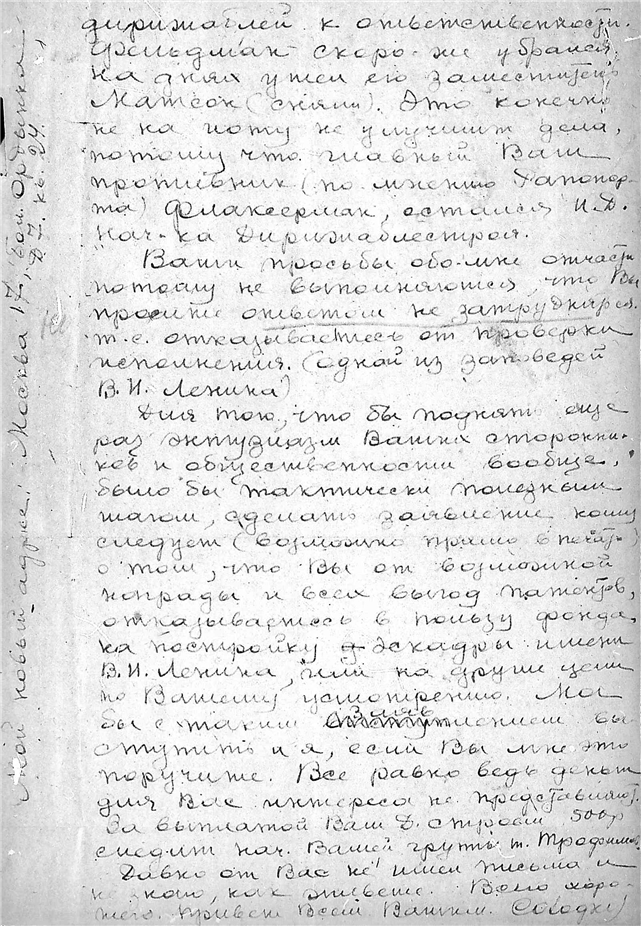 дирижаблей к ответственности.
Фельдман скоро-же убрался,
на днях ушел его заместитель
Матсон (сняли). Это конечно
не на йоту не улучшит дела,
потому что главный Ваш
противник (по мнению Рапопор-
та) Флаксерман, остался И.Д.
Нач-ка Дирижаблестроя.
Ваши просьбы обо-мне отчасти
потому не выполняются, что Вы
просите ответом не затрудняться.
т.е. отказываетесь от проверки
исполнения. (одной из заповедей
В.И. Ленина)
Для того, что бы поднять еще
раз энтузиазм Ваших сторонни-
ков и общественности вообще,
было бы тактически полезным
шагом, сделать заявление кому
следует (возможно прямо в печать)
о том, что Вы от возможной
награды и всех выгод патентов,
отказываетесь в пользу фонда,
на постройку эскадры имени
В.И. Ленина, или на другие цели
по Вашему усмотрению. Мог
бы с таким заявлением вы
ступить и я, если Вы мне это
поручите. Все равно ведь деньги
для Вас интереса не представляют.
За выплатой Вам Д. строем 500р
следит нач. Вашей группы т. Трофимов.
Давно от Вас не имел письма и
не знаю, как живете. Всего хоро-
шего. Привет Всем Вашим.
Мой новый адрес: Москва 17, Бол. Ордынка
д. 7. кв. 24.